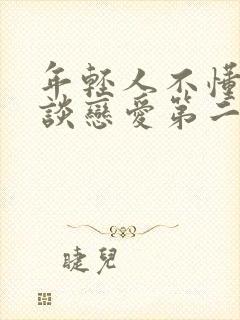 年輕人不懂
談戀愛第二
睫兒